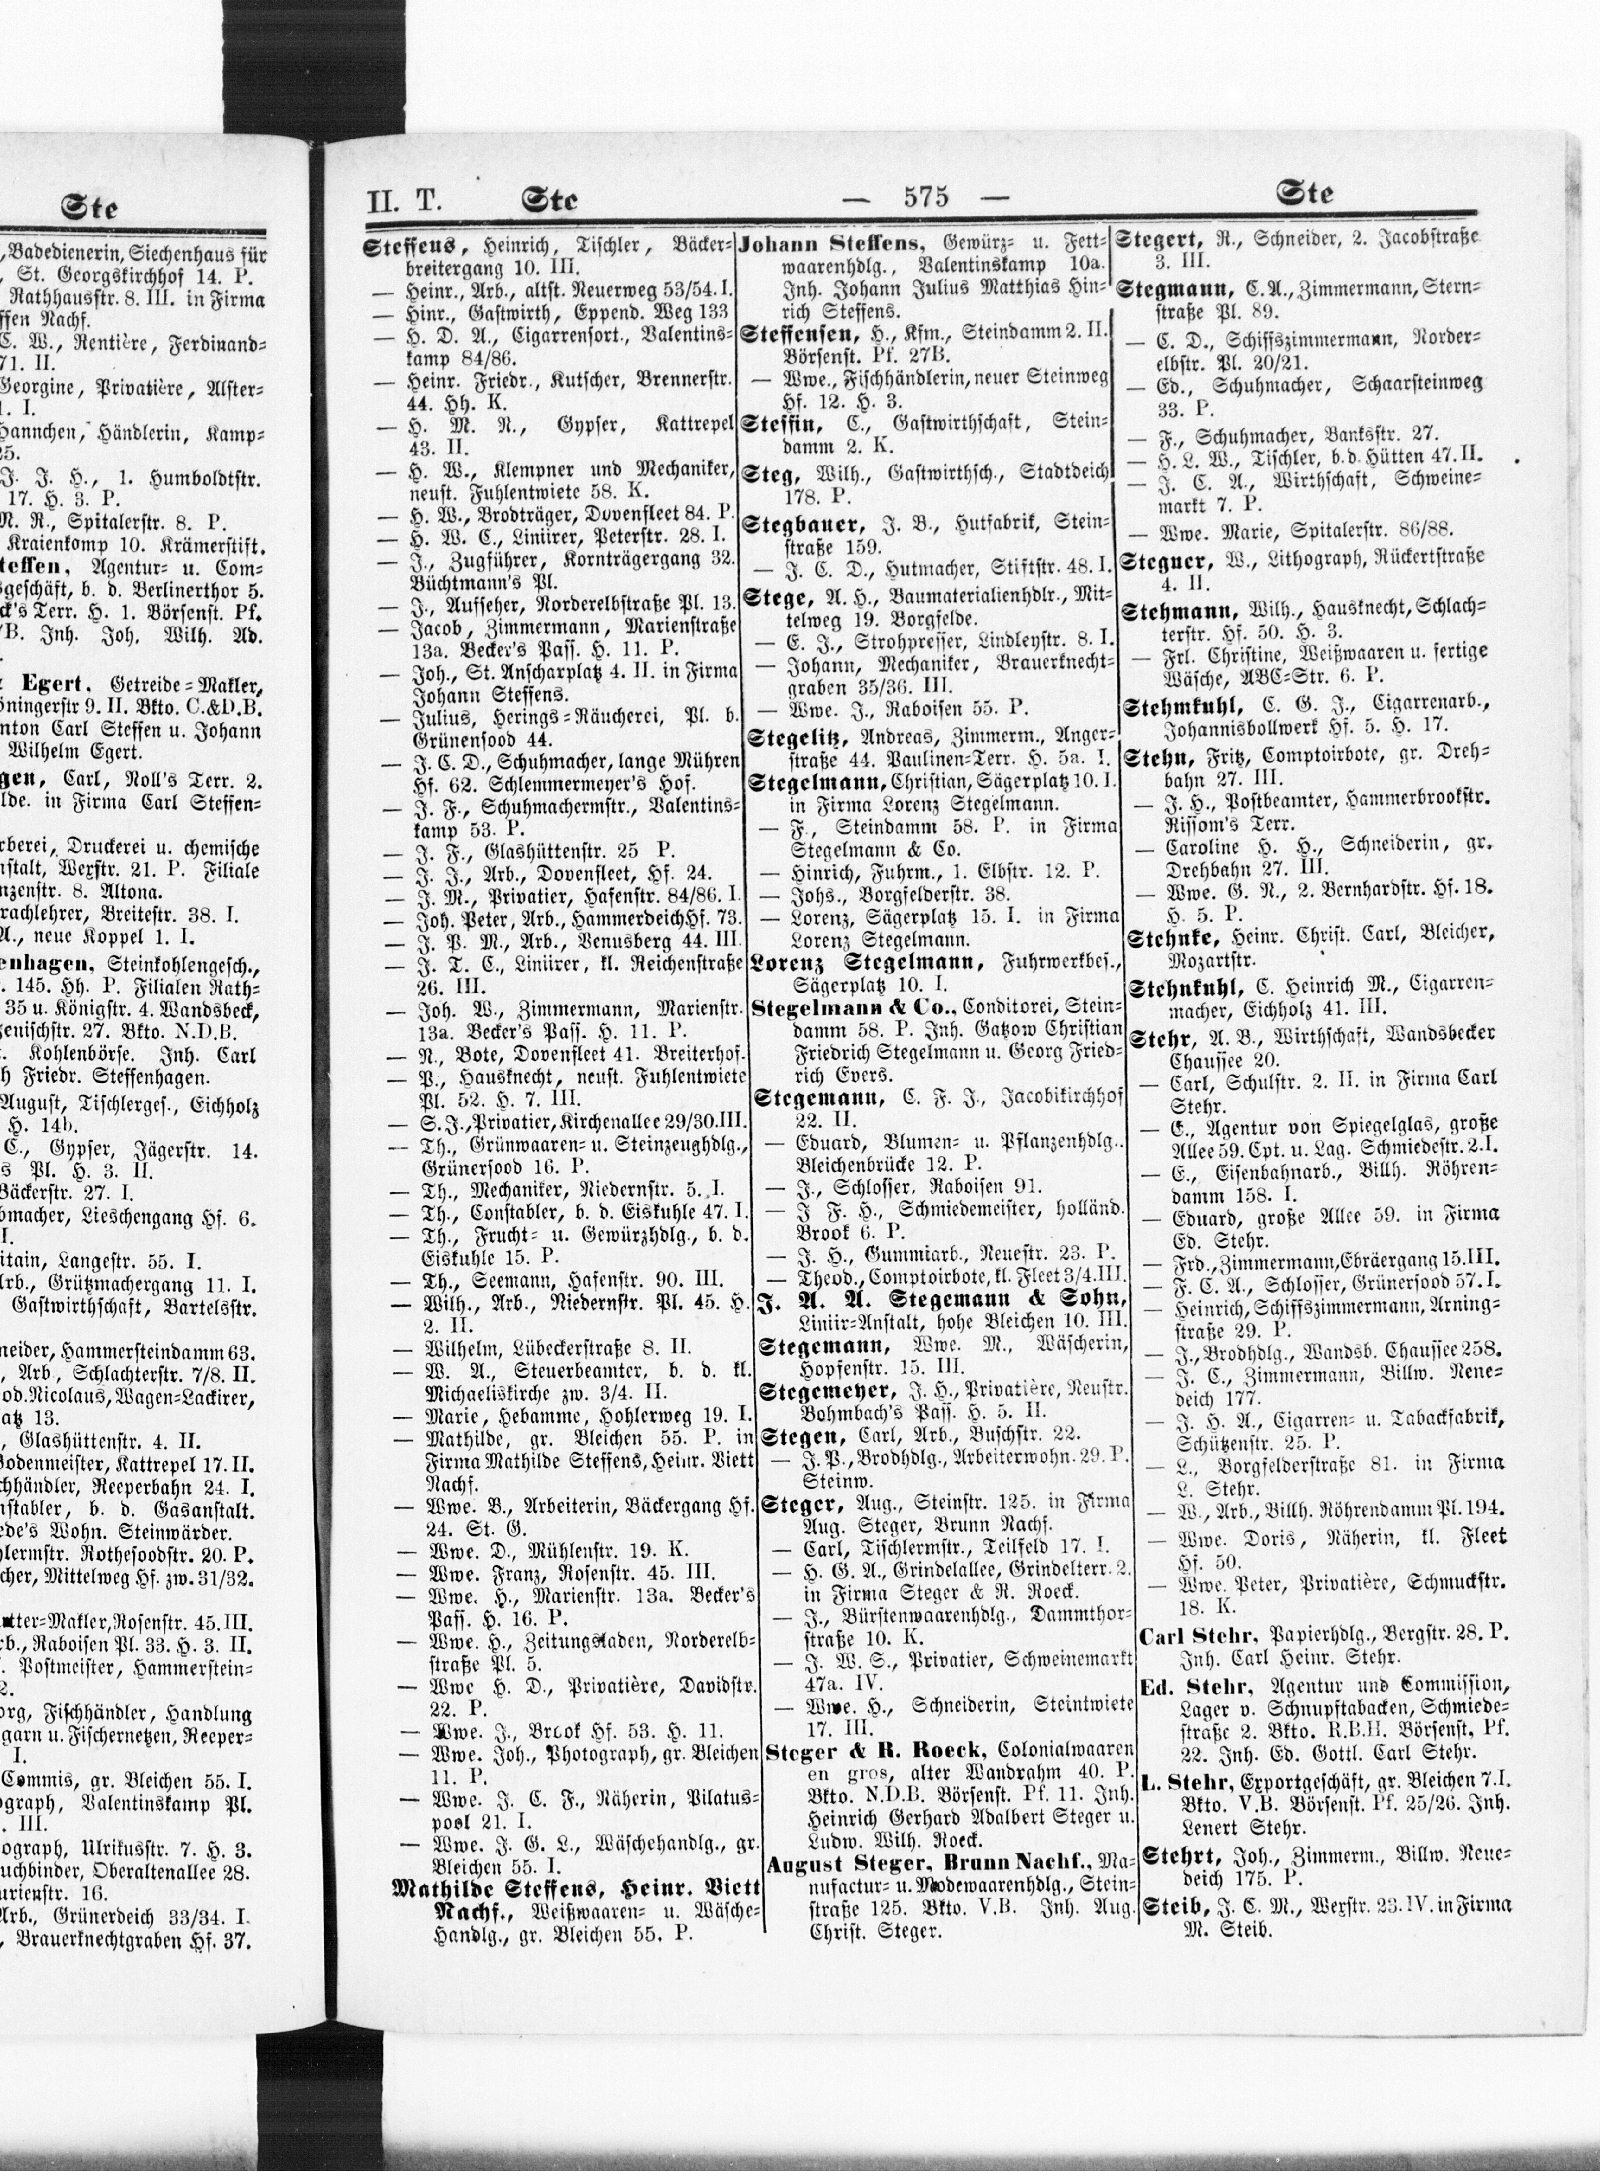 Ste
, Badedienerin, Siechenhaus für
, St. Georgskirchhof 14. P.
Rathhausstr. 8. III. in Firma
ffen Nachf.
C. W., Rentière, Ferdinand-
71. II.
Georgine, Privatière, Alster-
1. I.
Hannchen, Händlerin, Kamp-
25.
J. J. H., 1. Humboldtstr.
17. H. 3. P.
M. R., Spitalerstr. 8. P.
Kraienkomp 10. Krämerstift.
teffen, Agentur- u. Com-
sgeschäft, b. d. Berlinerthor 5.
ck's Terr. H. 1. Börsenst. Pf.
7B. Inh. Joh. Wilh. Ad.
Egert, Getreide-Makler,
öningerstr 9. II. Bkto. C.&D.B.
nton Carl Steffen u. Johann
Wilhelm Egert.
gen, Carl, Noll's Terr. 2.
lde. in Firma Carl Steffen-
rberei, Druckerei u. chemische
nstalt, Wexstr. 21. P. Filiale
nzenstr. 8. Altona.
rachlehrer, Breitestr. 38. I.
A., neue Koppel 1. I.
enhagen, Steinkohlengesch.,
. 145. Hh. P. Filialen Rath-
35 u. Königstr. 4. Wandsbeck,
zenischstr. 27. Bkto. N.D.B.
. Kohlenbörse. Inh. Carl
h Friedr. Steffenhagen.
August, Tischlerges., Eichholz
H. 14b.
C., Gypser, Jägerstr. 14.
s Pl. H. 3. II.
Bäckerstr. 27. I.
bmacher, Lieschengang Hf. 6.
I.
itain, Langestr. 55. I.
Arb., Grützmachergang 11. I.
Gastwirthschaft, Bartelsstr.
neider, Hammersteindamm 63.
, Arb, Schlachterstr. 7/8. II.
od. Nicolaus, Wagen-Lackirer,
atz 13.
, Glashüttenstr. 4. II.
Bodenmeister, Kattrepel 17. II.
chhändler, Reeperbahn 24. I.
nstabler, b. d. Gasanstalt.
ede's Wohn. Steinwärder.
lermstr. Rothesoodstr. 20. P.
cher, Mittelweg Hf. zw. 31/32.
tter-Makler, Rosenstr. 45. III.
rb., Raboisen Pl. 33. H. 3. II.
. Postmeister, Hammerstein-
2.
org, Fischhändler, Handlung
garn u. Fischernetzen, Reeper-
I.
Commis, gr. Bleichen 55. I.
ograph, Valentinskamp Pl.
. III.
ograph, Ulrikusstr. 7. H. 3.
uchbinder, Oberaltenallee 28.
urienstr. 16.
Arb., Grünerdeich 33/34. I.
, Brauerknechtgraben Hf. 37.
II. T. Ste — 575 — Ste
Steffens, Heinrich, Tischler, Bäcker-
breitergang 10. III.
— Heinr., Arb., altst. Neuerweg 53/54. I.
— Hinr., Gastwirth, Eppend. Weg 133
— H. D. A., Cigarrensort., Valentins-
kamp 84/86.
— Heinr. Friedr., Kutscher, Brennerstr.
44. Hh. K.
— H. M. N., Gypser, Kattrepel
43. II.
— H. W., Klempner und Mechaniker,
neust. Fuhlentwiete 58. K.
— H. W., Brodträger, Dovenfleet 84. P.
— H. W. C., Liniirer, Peterstr. 28. I.
— J., Zugführer, Kornträgergang 32.
Büchtmann's Pl.
— J., Aufseher, Norderelbstraße Pl. 13.
— Jacob, Zimmermann, Marienstraße
13a. Becker's Pass. H. 11. P.
— Joh., St. Anscharplatz 4. II. in Firma
Johann Steffens.
— Julius, Herings-Räucherei, Pl. b.
Grünensood 44.
— J. C. D., Schuhmacher, lange Mühren
Hf. 62. Schlemmermeyer's Hof.
— J. F., Schuhmachermstr., Valentins-
kamp 53. P.
— J. F., Glashüttenstr. 25 P.
— J. J., Arb., Dovenfleet, Hf. 24.
— J. M., Privatier, Hafenstr. 84/86. I.
— Joh. Peter, Arb., Hammerdeich Hf. 73.
— J. P. M., Arb., Venusberg 44. III.
— J. T. C., Liniirer, kl. Reichenstraße
26. III.
— Joh. W., Zimmermann, Marienstr.
13a. Becker's Pass. H. 11. P.
— N., Bote, Dovenfleet 41. Breiterhof.
— P., Hausknecht, neust. Fuhlentwiete
Pl. 52. H. 7. III.
— S. J., Privatier, Kirchenallee 29/30. III.
— Th., Grünwaaren- u. Steinzeughdlg.,
Grünersood 16. P.
— Th., Mechaniker, Niedernstr. 5. I.
— Th., Constabler, b. d. Eiskuhle 47. I.
— Th., Frucht- u. Gewürzhdlg., b. d.
Eiskuhle 15. P.
— Th., Seemann, Hafenstr. 90. III.
— Wilh., Arb., Niedernstr. Pl. 45. H.
2. II.
— Wilhelm, Lübeckerstraße 8. II.
— W. A., Steuerbeamter, b. d. kl.
Michaeliskirche zw. 3/4. II.
— Marie, Hebamme, Hohlerweg 19. I.
— Mathilde, gr. Bleichen 55. P. in
Firma Mathilde Steffens, Heinr. Viett
Nachf.
— Wwe. B., Arbeiterin, Bäckergang Hf.
24. St. G.
— Wwe. D., Mühlenstr. 19. K.
— Wwe. Franz, Rosenstr. 45. III.
— Wwe. H., Marienstr. 13a. Becker's
Pass. H. 16. P.
— Wwe. H., Zeitungsladen, Norderelb-
straße Pl. 5.
— Wwe H. D., Privatière, Davidstr.
22. P.
— Wwe. J., Brook Hf. 53. H. 11.
— Wwe. Joh., Photograph, gr. Bleichen
11. P.
— Wwe. J. C. F., Näherin, Pilatus-
pool 21. I.
— Wwe. J. G. L., Wäschehandlg., gr.
Bleichen 55. I.
Mathilde Steffens, Heinr. Viett
Nachf., Weißwaaren- u. Wäsche-
Handlg., gr. Bleichen 55. P.
Johann Steffens, Gewürz- u. Fett-
waarenhdlg., Valentinskamp 10a.
Inh. Johann Julius Matthias Hin-
rich Steffens.
Steffensen, H., Kfm., Steindamm 2. II.
Börsenst. Pf. 27B.
— Wwe., Fischhändlerin, neuer Steinweg
Hf. 12. H. 3.
Steffin, C., Gastwirthschaft, Stein-
damm 2. K.
Steg, Wilh., Gastwirthsch., Stadtdeich
178. P.
Stegbauer, J. B., Hutfabrik, Stein-
straße 159.
— J. C. D., Hutmacher, Stiftstr. 48. I.
Stege, A. H., Baumaterialienhdlr., Mit-
telweg 19. Borgfelde.
— E. J., Strohpresser, Lindleystr. 8. I.
— Johann, Mechaniker, Brauerknecht-
graben 35/36. III.
— Wwe. J., Raboisen 55. P.
Stegelitz, Andreas, Zimmerm., Anger-
straße 44. Paulinen-Terr. H. 5a. I.
Stegelmann, Christian, Sägerplatz 10. I.
in Firma Lorenz Stegelmann.
— F., Steindamm 58. P. in Firma
Stegelmann & Co.
— Hinrich, Fuhrm., 1. Elbstr. 12. P.
— Johs., Borgfelderstr. 38.
— Lorenz, Sägerplatz 15. I. in Firma
Lorenz Stegelmann.
Lorenz Stegelmann, Fuhrwerkbes.,
Sägerplatz 10. I.
Stegelmann & Co., Conditorei, Stein-
damm 58. P. Inh. Gatzow Christian
Friedrich Stegelmann u. Georg Fried-
rich Evers.
Stegemann, C. F. J., Jacobikirchhof
22. II.
— Eduard, Blumen- u. Pflanzenhdlg..
Bleichenbrücke 12. P.
— J., Schlosser, Raboisen 91.
— J F. H., Schmiedemeister, holländ.
Brook 6. P.
— J. H., Gummiarb., Neuestr. 23. P.
— Theod., Comptoirbote, kl. Fleet 3/4. III.
J. A. A. Stegemann & Sohn,
Liniir-Anstalt, hohe Bleichen 10. III.
Stegemann, Wwe. M., Wäscherin,
Hopfenstr. 15. III.
Stegemeyer, J. H., Privatière, Neustr.
Bohmbach's Pass. H. 5. II.
Stegen, Carl, Arb., Buschstr. 22.
— J. P., Brodhdlg., Arbeiterwohn. 29. P.
Steinw.
Steger, Aug., Steinstr. 125. in Firma
Aug. Steger, Brunn Nachf.
— Carl, Tischlermstr., Teilfeld 17. I.
— H. G. A., Grindelallee, Grindelterr. 2.
in Firma Steger & R. Roeck.
— J., Bürstenwaarenhdlg., Dammthor-
straße 10. K.
— J. W. S., Privatier, Schweinemarkt
47a. IV.
— Wwe. H., Schneiderin, Steintwiete
17. III.
Steger & R. Roeck, Colonialwaaren
en gros, alter Wandrahm 40. P.
Bkto. N.D.B. Börsenst. Pf. 11. Inh.
Heinrich Gerhard Adalbert Steger u.
Ludw. Wilh. Roeck.
August Steger, Brunn Nachf., Ma-
nufactur- u. Modewaarenhdlg., Stein-
straße 125. Bkto. V.B. Inh. Aug.
Christ. Steger.
Stegert, R., Schneider, 2. Jacobstraße
3. III.
Stegmann, C. A., Zimmermann, Stern-
straße Pl. 89.
— C. D., Schiffszimmermann, Norder-
elbstr. Pl. 20/21.
— Ed., Schuhmacher, Schaarsteinweg
33. P.
— F., Schuhmacher, Banksstr. 27.
— H. L. W., Tischler, b. d. Hütten 47. II.
— J. C. A., Wirthschaft, Schweine-
markt 7. P.
— Wwe. Marie, Spitalerstr. 86/88.
Stegner, W., Lithograph, Rückertstraße
4. II.
Stehmann, Wilh., Hausknecht, Schlach-
terstr. Hf. 50. H. 3.
— Frl. Christine, Weißwaaren u. fertige
Wäsche, ABC-Str. 6. P.
Stehmkuhl, C. G. J., Cigarrenarb.,
Johannisbollwerk Hf. 5. H. 17.
Stehn, Fritz, Comptoirbote, gr. Dreh-
bahn 27. III.
— J. H., Postbeamter, Hammerbrookstr.
Rissom's Terr.
— Caroline H. H., Schneiderin, gr.
Drehbahn 27. III.
— Wwe. G. N., 2. Bernhardstr. Hf. 18.
H. 5. P.
Stehnke, Heinr. Christ. Carl, Bleicher,
Mozartstr.
Stehnkuhl, C. Heinrich M., Cigarren-
macher, Eichholz 41. III.
Stehr, A. B., Wirthschaft, Wandsbecker
Chaussee 20.
— Carl, Schulstr. 2. II. in Firma Carl
Stehr.
— E., Agentur von Spiegelglas, große
Allee 59. Cpt. u. Lag. Schmiedestr. 2. I.
— E., Eisenbahnarb., Billh. Röhren-
damm 158. I.
— Eduard, große Allee 59. in Firma
Ed. Stehr.
— Frd., Zimmermann, Ebräergang 15. III.
— F. C. A., Schlosser, Grünersood 57. I.
— Heinrich, Schiffszimmermann, Arning-
straße 29. P.
— J., Brodhdlg., Wandsb. Chaussee 258.
— J. C., Zimmermann, Billw. Neue-
deich 177.
— J. H. A., Cigarren- u. Tabackfabrik,
Schützenstr. 25. P.
— L., Borgfelderstraße 81. in Firma
L. Stehr.
— W., Arb., Billh. Röhrendamm Pl. 194.
— Wwe. Doris, Näherin, kl. Fleet
Hf. 50.
— Wwe. Peter, Privatière, Schmuckstr.
18. K.
Carl Stehr, Papierhdlg., Bergstr. 28. P.
Inh. Carl Heinr. Stehr.
Ed. Stehr, Agentur und Commission,
Lager v. Schnupftabacken, Schmiede-
straße 2. Bkto. R.B.H. Börsenst. Pf.
22. Inh. Ed. Gottl. Carl Stehr.
L. Stehr, Exportgeschäft, gr. Bleichen 7. I.
Bkto. V.B. Börsenst. Pf. 25/26. Inh.
Lenert Stehr.
Stehrt, Joh., Zimmerm., Billw. Neue-
deich 175. P.
Steib, J. C. M., Wexstr. 23. IV. in Firma
M. Steib.